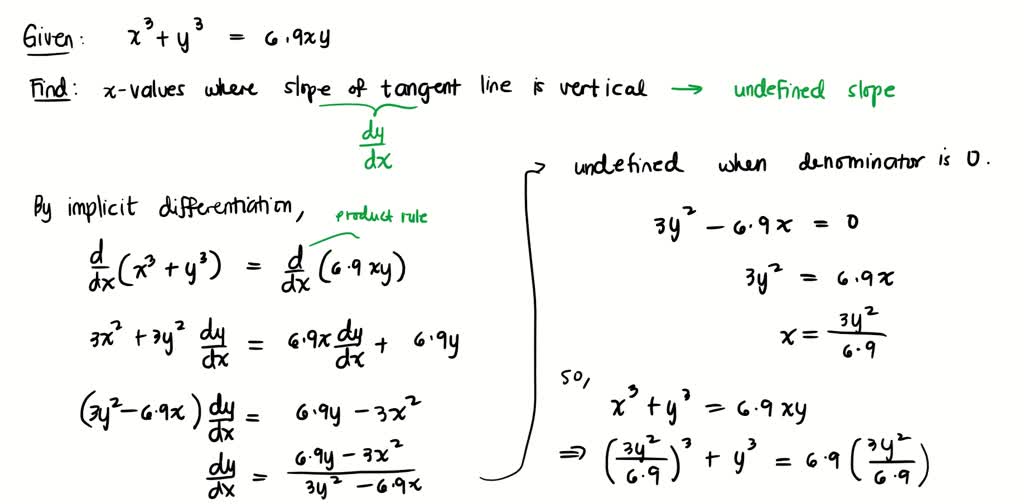 Given: x³ + y³ = 6.9xy
Find: x-values where slope of tangent line is vertical → undefined slope
dy/dx
By implicit differentiation,
product rule
d/dx (x³ + y³) = d/dx (6.9xy)
3x² + 3y² dy/dx = 6.9x dy/dx + 6.9y
(3y² - 6.9x) dy/dx = 6.9y - 3x²
dy/dx = (6.9y - 3x²)/(3y² - 6.9x)
→ undefined when denominator is 0.
3y² - 6.9x = 0
3y² = 6.9x
x = 3y²/6.9
so,
x³ + y³ = 6.9xy
⇒ (3y²/6.9)³ + y³ = 6.9 (3y²/6.9)